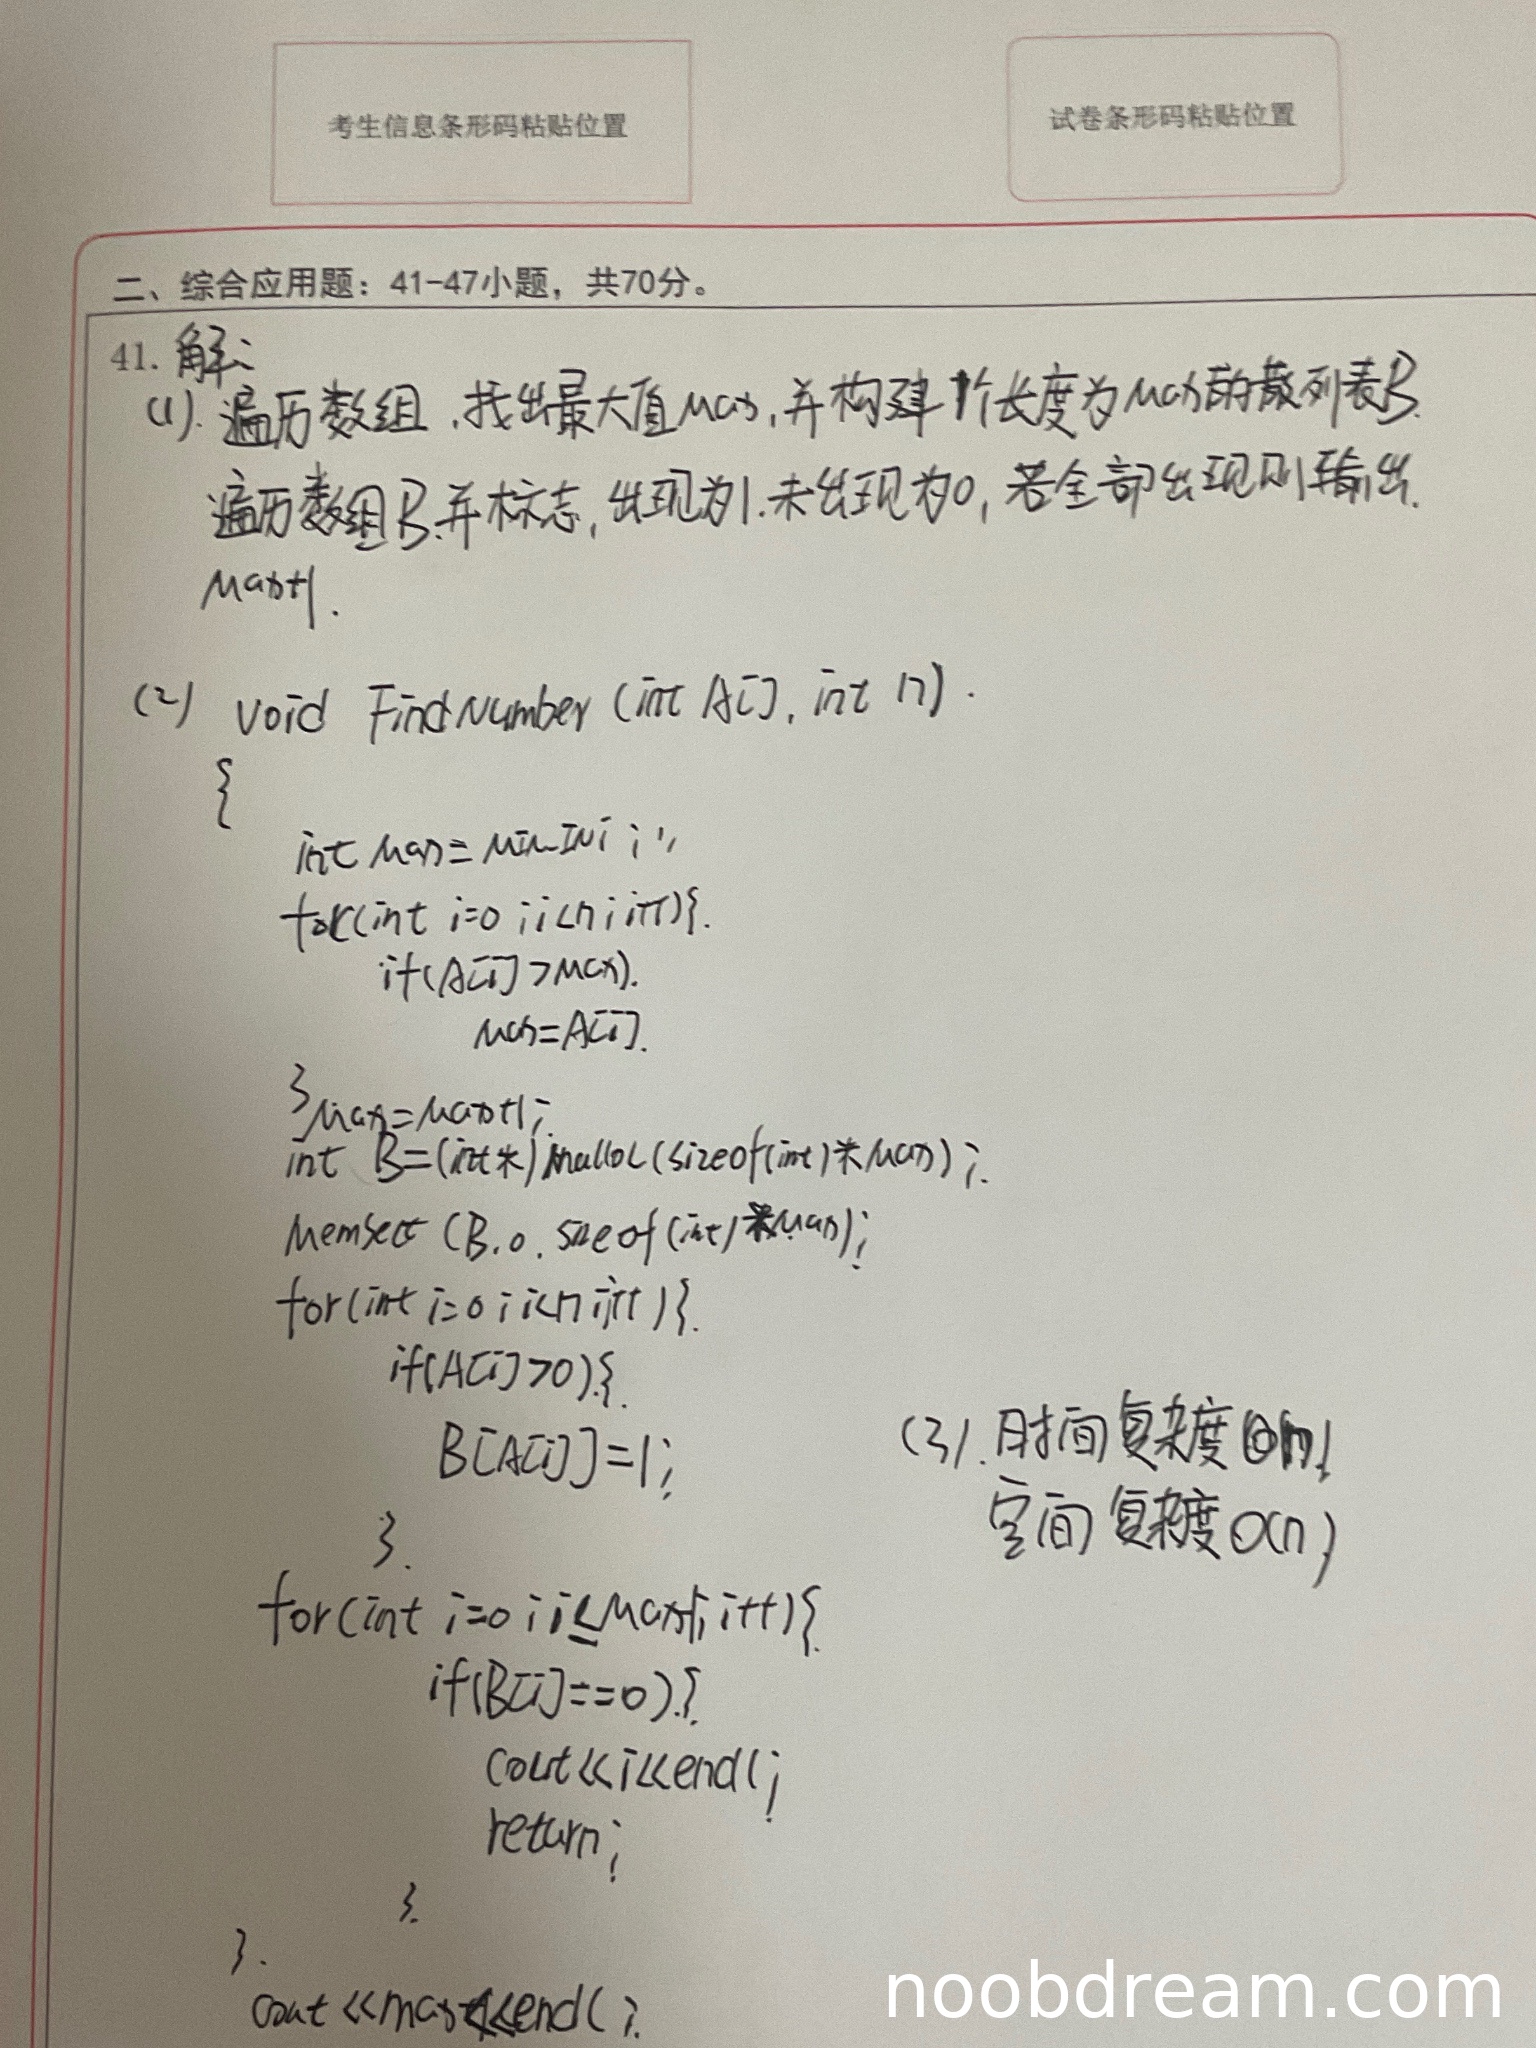 考生信息条形码粘贴位置
试卷条形码粘贴位置
二、综合应用题：41-47小题，共70分。
41. 解：
(1). 遍历数组，找出最大值max，并构建1个长度为max的散列表B.
遍历数组B.并标志，出现为1.未出现为0，若全部出现则输出.
max+1.
(2) void FindNumber (int A[], int n).
{
int max = MININI;
for(int i=0;i<n;i++){.
if(A[i]>max).
max=A[i].
}
max=max+1;
int B=(int*)malloc(sizeof(int)*max);
memset (B,0,sizeof(int)*max);
for(int i=0;i<n;i++){.
if(A[i]>0){.
B[A[i]]=1;
}.
(3). 时间复杂度O(n)
空间复杂度O(n)
for(int i=0;i≤max+1;i++){
if(B[i]==0){
cout<<i<<endl;
return;
}.
}.
cout<<max<<endl;
noobdream.com